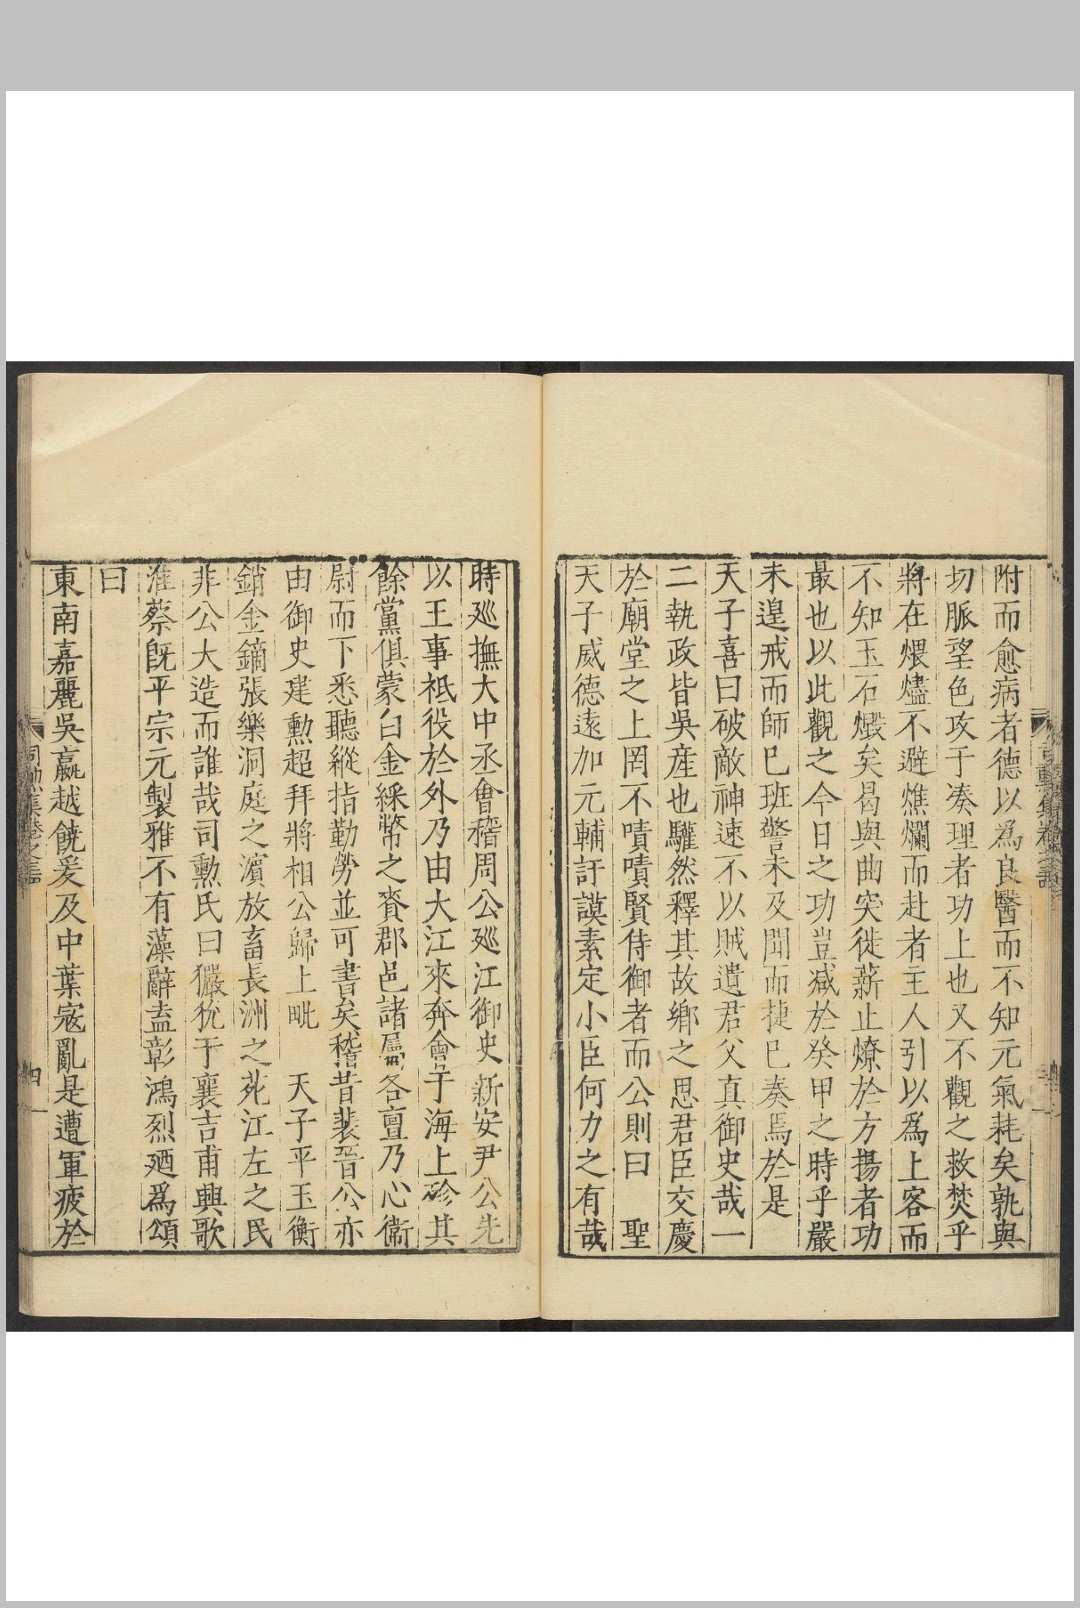 附而愈病者德以為良醫而不知元氣耗矣孰與
切脈望色攻于凑理者功上也又不觀之救焚乎
將在煨燼不避燋爛而赴者主人引以為上客而
不知玉石燬矣曷與曲突徙薪止燎於方揚者功
最也以此觀之今日之功豈減於癸甲之時乎嚴
未遑戒而師已班警未及聞而捷已奏焉於是
天子喜曰破敵神速不以賊遺君父真御史哉一
二執政皆吳産也驩然釋其故鄉之思君臣交慶
於廟堂之上罔不嘖嘖賢侍御者而公則曰　聖
天子威德遠加元輔訏謨素定小臣何力之有哉
時廵撫大中丞會稽周公廵江御史新安尹公先
以王事祗役於外乃由大江來奔會于海上殄其
餘黨俱蒙白金綵幣之賚郡邑諸屬各亶乃心衞
尉而下悉聽縱指勤勞並可書矣嵇昔裴晉公亦
由御史建勲超拜將相公歸上毗　天子平玉衡
銷金鏑張樂洞庭之濵放畜長洲之苑江左之民
非公大造而誰哉司勲氏曰玁狁于襄吉甫興歌
淮蔡旣平宗元製雅不有藻辭盍彰鴻烈廼為頌
曰
東南嘉麗吳嬴越饒爰及中葉寇亂是遭軍疲於
司勲集卷之三
四